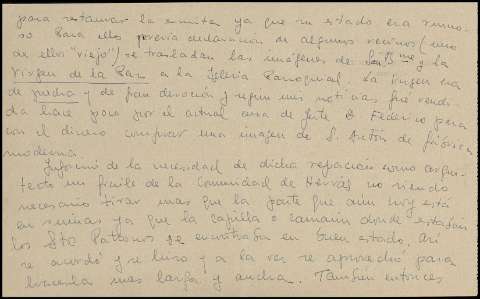 para restaurar la ermita ya que su estado era ruino-
so Para ello previa declaración de algunos vecinos (uno
de ellos "viejo") se trasladan las imágenes de San B.me y la
Virgen de la Paz a la Iglesia Parroquial. La imagen era
de piedra y de gran devoción y segun mis noticias fué vendi-
da hace poco por el actual cura de este D. Federico para
con el dinero comprar una imagen de S. Antón de fábrica
moderna.
Informó de la necesidad de dicha reparación como arqui-
tecto un fraile de la Comunidad de Hervás no siendo
necesario tirar mas que la parte que aun hoy está
en ruinas ya que la capilla o camarin donde estaban
los Stos Patronos se encontraba en buen estado. Asi
se acordó y se hizo y a la vez se aprovechó para
hacerla mas larga y ancha. Tambien entonces